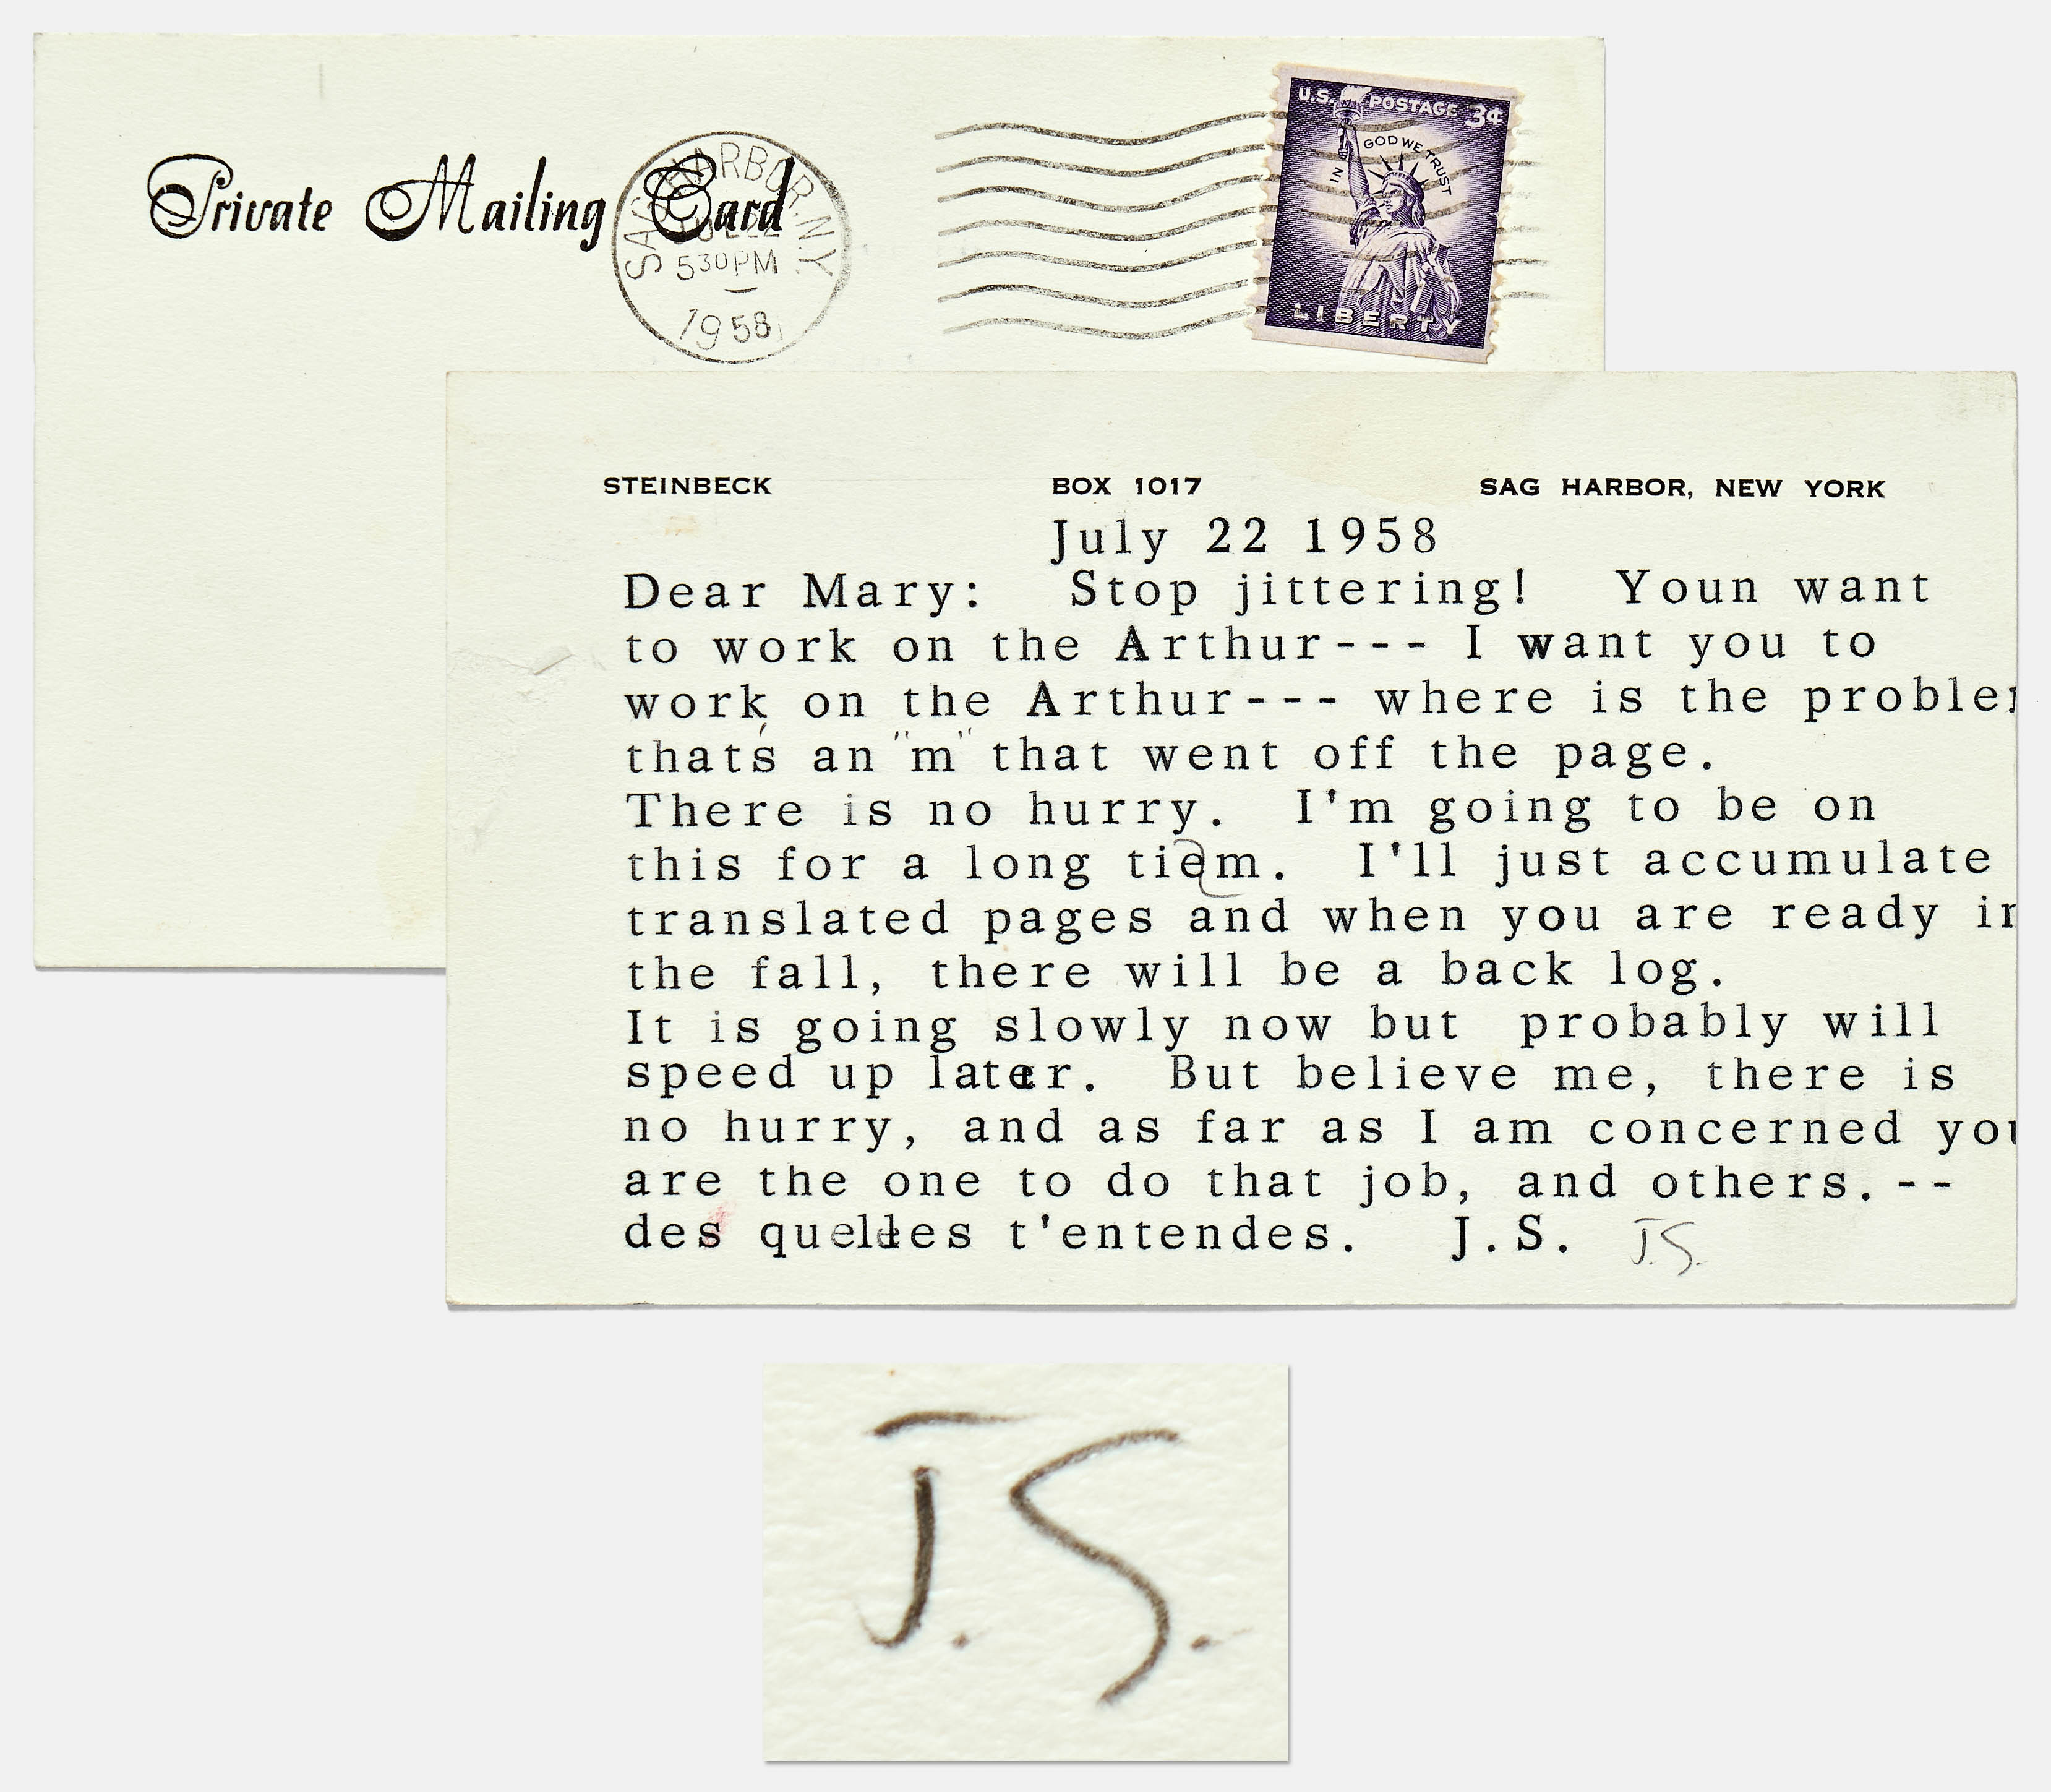 Private Mailing Card
SAG HARBOR, N.Y.
530PM
1958
U.S. POSTAGE 3¢
IN GOD WE TRUST
LIBERTY
STEINBECK BOX 1017 SAG HARBOR, NEW YORK
July 22 1958
Dear Mary: Stop jittering! Youn want
to work on the Arthur--- I want you to
work on the Arthur--- where is the proble
that's an "m" that went off the page.
There is no hurry. I'm going to be on
this for a long tiem. I'll just accumulate
translated pages and when you are ready in
the fall, there will be a back log.
It is going slowly now but probably will
speed up later. But believe me, there is
no hurry, and as far as I am concerned you
are the one to do that job, and others.--
des quelles t'entendes. J.S. J.S.
J.S.